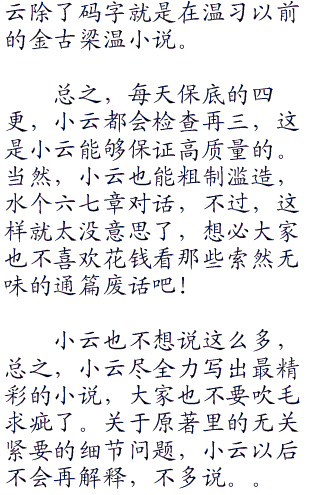 云除了码字就是在温习以前
的金古梁温小说。
总之，每天保底的四
更，小云都会检查再三，这
是小云能够保证高质量的。
当然，小云也能粗制滥造，
水个六七章对话，不过，这
样就太没意思了，想必大家
也不喜欢花钱看那些索然无
味的通篇废话吧！
小云也不想说这么多，
总之，小云尽全力写出最精
彩的小说，大家也不要吹毛
求疵了。关于原著里的无关
紧要的细节问题，小云以后
不会再解释，不多说。。